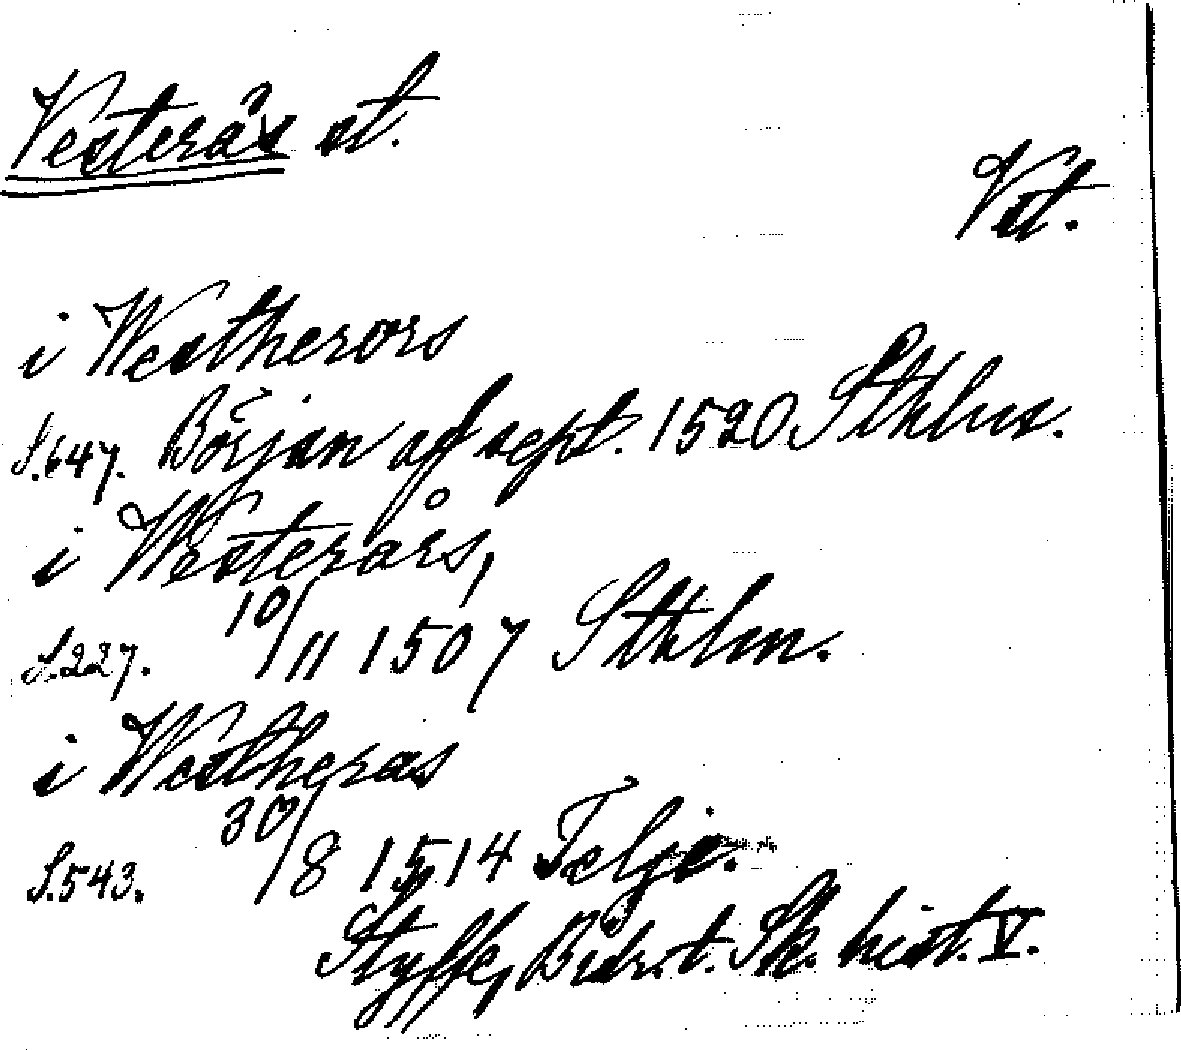 Vesterås st.
Vst.
i Westherors
S. 647. Början af sept. 1520 Sthlm.
i Westerårs,
S. 227. 10/11 1507 Sthlm.
i Westheras
S. 543. 30/8 1514 Telje.
Styffe, Bidr. t. Sk. hist. V.